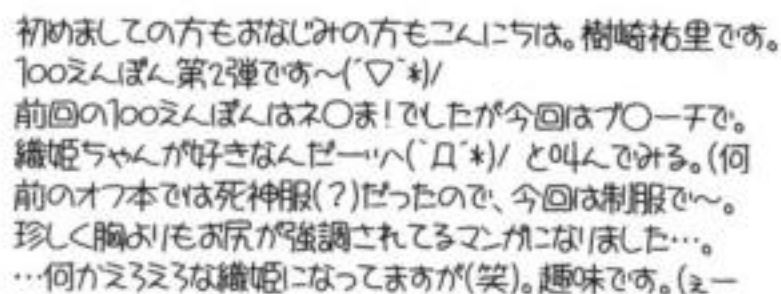 初めましての方もおなじみの方もこんにちは。樹崎祐里です。
100えんぽん第2弾です〜(´▽`*)/
前回の100えんぽんはネ○ま!でしたが今回はブ○ーチで。
織姫ちゃんが好きなんだー''ヘ(`Д´*)/ と叫んでみる。(何
前のオフ本では死神服(?)だったので、今回は制服で〜。
珍しく胸よりもお尻が強調されてるマンガになりました…。
…何かえろえろな織姫になってますが(笑)。趣味です。(ぇー